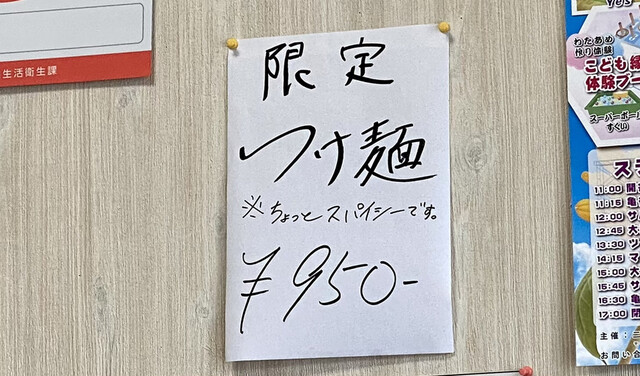 生活衛生課
限定
つけ麺
※ちょっとスパイシーです。
¥950-
わたあめ
作り体験
こども縁
体験ブー
スーパーボール
すくい
ス
11:00 開
11:15 亀
12:00 サ
12:45 大
13:30 ツ
14:15 マ
15:00 大
15:45 サ
16:30 亀
17:00 閉
主催
お問い合